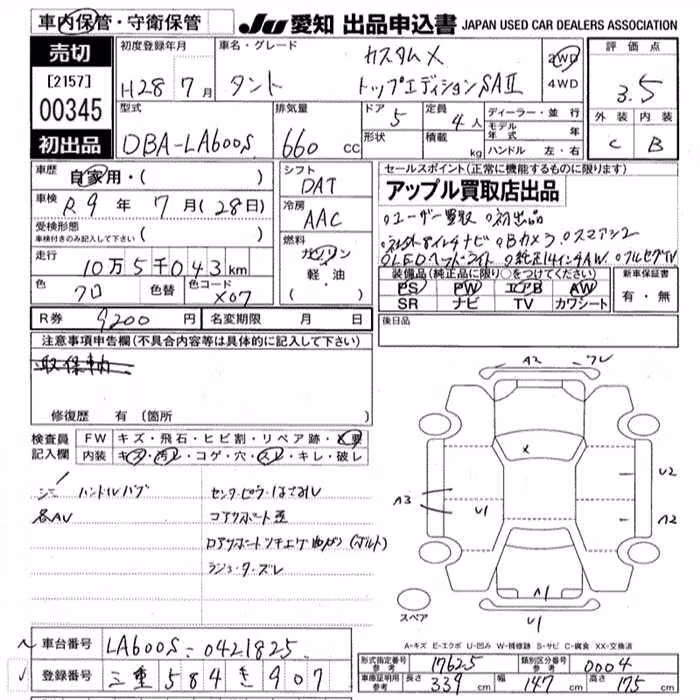 車内保管・守衛保管
JU 愛知 出品申込書 JAPAN USED CAR DEALERS ASSOCIATION
売切
[2157]
00345
初出品
初度登録年月
H28 7月
車名・グレード
タント
カスタムX
トップエディションSAⅡ
2WD
4WD
評価点
3.5
外装 内装
C B
型式
DBA-LA600S
排気量
660 cc
ドア 5
形状
定員 4人
積載 kg
ディーラー・並行
モデル年式 年
ハンドル 左・右
車歴 自家用・( )
車検 R9年 7月(28日)
受検形態 ( )
車検付きのみ記入して下さい
走行 10万5千043km
色 クロ 色替 色コード X07
シフト
DAT
冷房
AAC
燃料
ガソリン
軽油
( ・ )
セールスポイント(正常に機能するものに限ります)
アップル買取店出品
○ユーザー買取 ○初出品
ナビ ○Bカメラ ○スマアシ2
○LEDヘッドライト ○純正14インチAW ○フルセグTV
装備品(純正品に限り○をつけてください)
PS PW エアB AW
SR ナビ TV カワシート
新車保証書
有・無
R券 9200円 名変期限 月 日
後日品
注意事項申告欄(不具合内容等は具体的に記入して下さい)
取保車内
修復歴 有 (箇所
検査員記入欄
FW キズ・飛石・ヒビ割・リペア跡・X要
内装 キズ・汚レ・コゲ・穴・スレ・キレ・破レ
シミ ハンドルハゲ
各AU
センターピラーはざおし
コアサポート歪
ロアサポートツナギ曲がり(ボルト)
ラジエターズレ
A2
X
A3
U1
U2
A2
A1
U1
スペア
A-キズ E-エクボ U-凹み W-補修跡 S-サビ C-腐食 XX-交換済
車台番号 LA600S-0421825
登録番号 三重 584 き 907
形式指定番号 参考 17625
類別区分番号 参考 0004
車庫証明用 参考 長さ 339 cm 幅 147 cm 高さ 175 cm